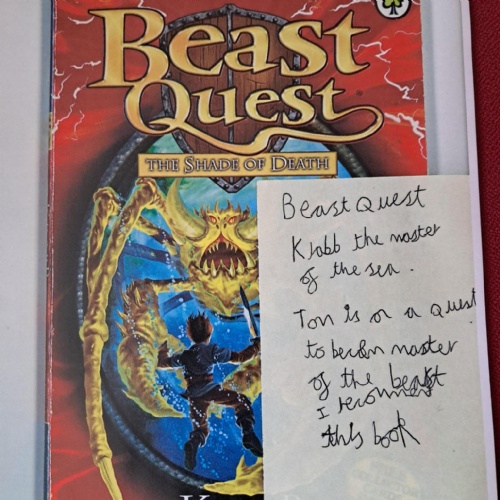 BEAST
QUEST
THE SHADE OF DEATH
Beast Quest
Krabb the master
of the sea.
Tom is on a quest
to becom master
of the beast
I recomend
this book
K